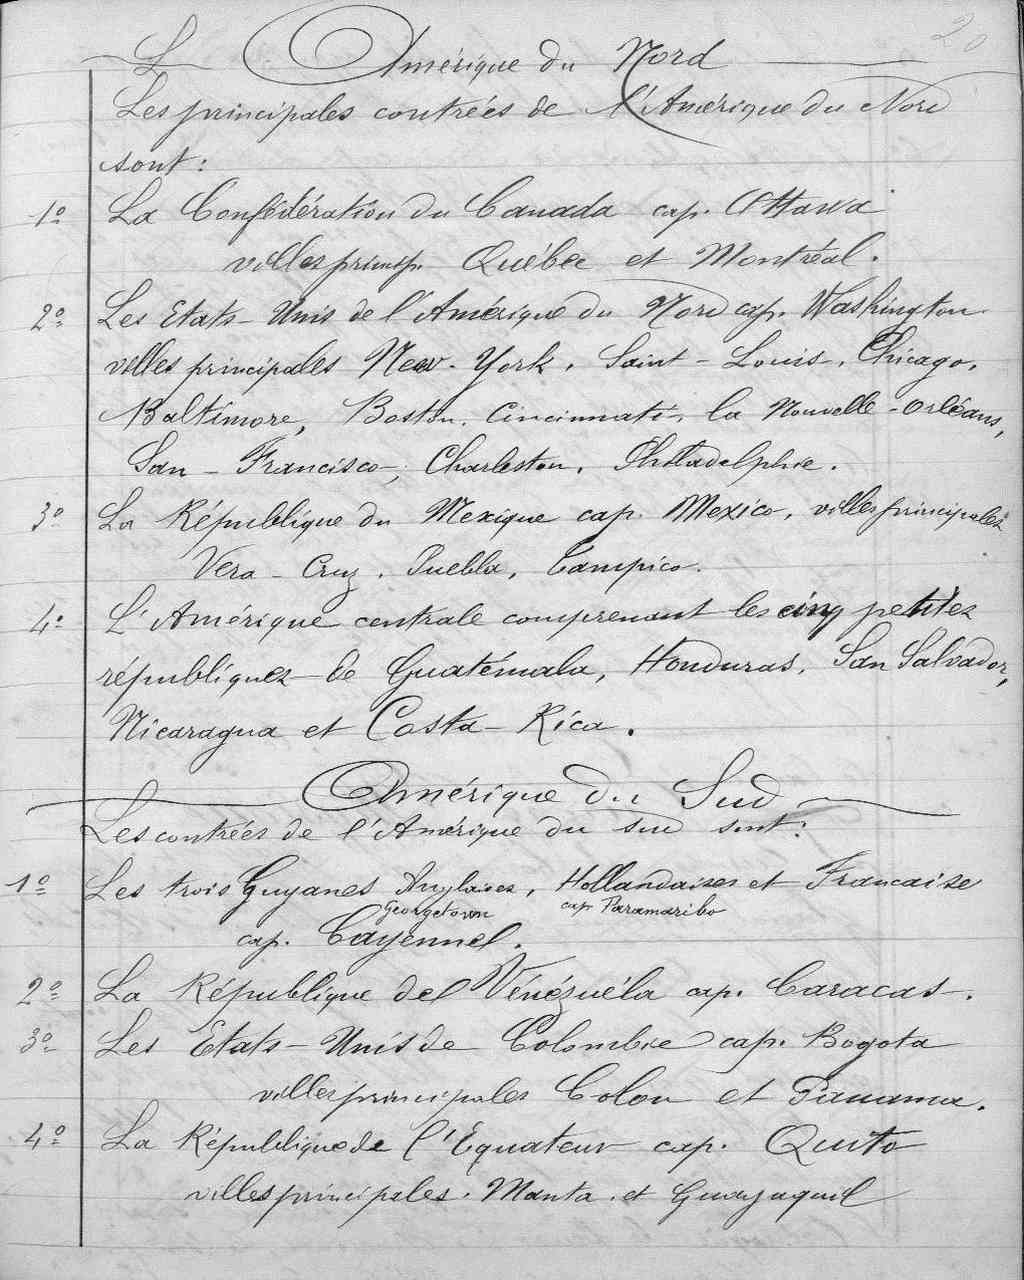 20
L' Amérique du Nord
Les principales contrées de l'Amérique du Nord
sont :
1º La Confédération du Canada cap. Ottawa
villes princip. Québec et Montréal.
2º Les Etats-Unis de l'Amérique du Nord cap. Washington
villes principales New-York, Saint-Louis, Chicago,
Baltimore, Boston, Cincinnati, la Nouvelle-Orléans,
San-Francisco, Charleston, Philadelphie.
3º La République du Mexique cap. Mexico, villes principales
Vera-Cruz, Puebla, Tampico.
4º L'Amérique centrale comprenant les cinq petites
républiques de Guatémala, Honduras, San Salvador,
Nicaragua et Costa-Rica.
Amérique du Sud
Les contrées de l'Amérique du sud sont :
1º Les trois Guyanes Anglaises, Hollandaises et Francaise
Georgetown cap Paramaribo
cap. Cayennel.
2º La République del Vénézuéla cap. Caracas.
3º Les Etats-Unis de Colombie cap. Bogota
villes principales Colon et Panama.
4º La République de l'Equateur cap. Quito
villes principales. Manta et Guayaquil